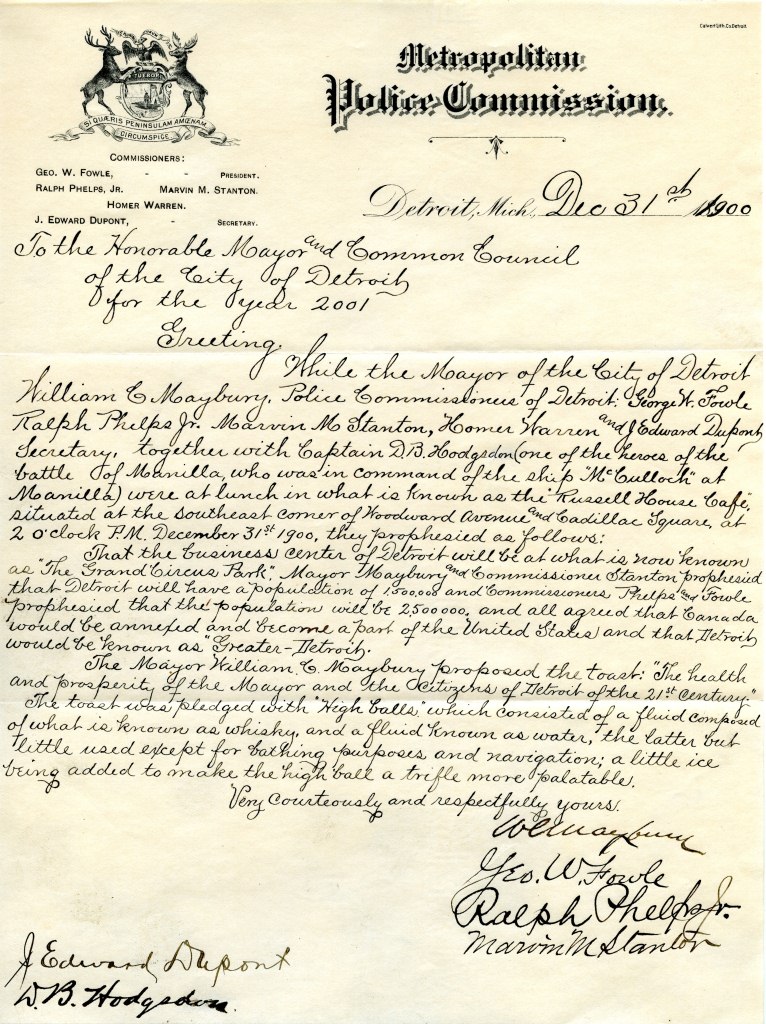 Calvert Lith. Co. Detroit.
Metropolitan
Police Commission.
TUEBOR
SI QUÆRIS PENINSULAM AMŒNAM
CIRCUMSPICE
COMMISSIONERS:
GEO. W. FOWLE, - - PRESIDENT.
RALPH PHELPS, JR. MARVIN M. STANTON.
HOMER WARREN.
J. EDWARD DUPONT, - - SECRETARY.
Detroit, Mich., Dec 31st 1900
To the Honorable Mayor and Common Council
of the City of Detroit
for the year 2001
Greeting.
While the Mayor of the City of Detroit
William C Maybury, Police Commissioners of Detroit: George W. Fowle
Ralph Phelps Jr. Marvin M Stanton, Homer Warren and J Edward Dupont,
Secretary, together with Captain D.B. Hodgsdon (one of the heroes of the
battle of Manilla, who was in command of the ship "McCulloch" at
Manilla) were at lunch in what is known as the "Russell House Café",
situated at the southeast corner of Woodward Avenue and Cadillac Square, at
2 o'clock P.M. December 31st 1900, they prophesied as follows:
That the business center of Detroit will be at what is now known
as "The Grand Circus Park", Mayor Maybury and Commissioner Stanton prophesied
that Detroit will have a population of 1,500,000 and Commissioners Phelps and Fowle
prophesied that the population will be 2,500000, and all agreed that Canada
would be annexed and become a part of the United States and that Detroit
would be known as "Greater-Detroit.
The Mayor William C. Maybury proposed the toast: "The health
and prosperity of the Mayor and the Citizens of Detroit of the 21st Century"
The toast was pledged with "High Balls" which consisted of a fluid composed
of what is known as whisky, and a fluid known as water, the latter but
little used except for bathing purposes and navigation; a little ice
being added to make the high ball a trifle more palatable.
Very courteously and respectfully yours.
W C Maybury
Geo. W. Fowle
Ralph Phelps Jr.
Marvin M Stanton
J Edward Dupont
D. B. Hodgsdon.